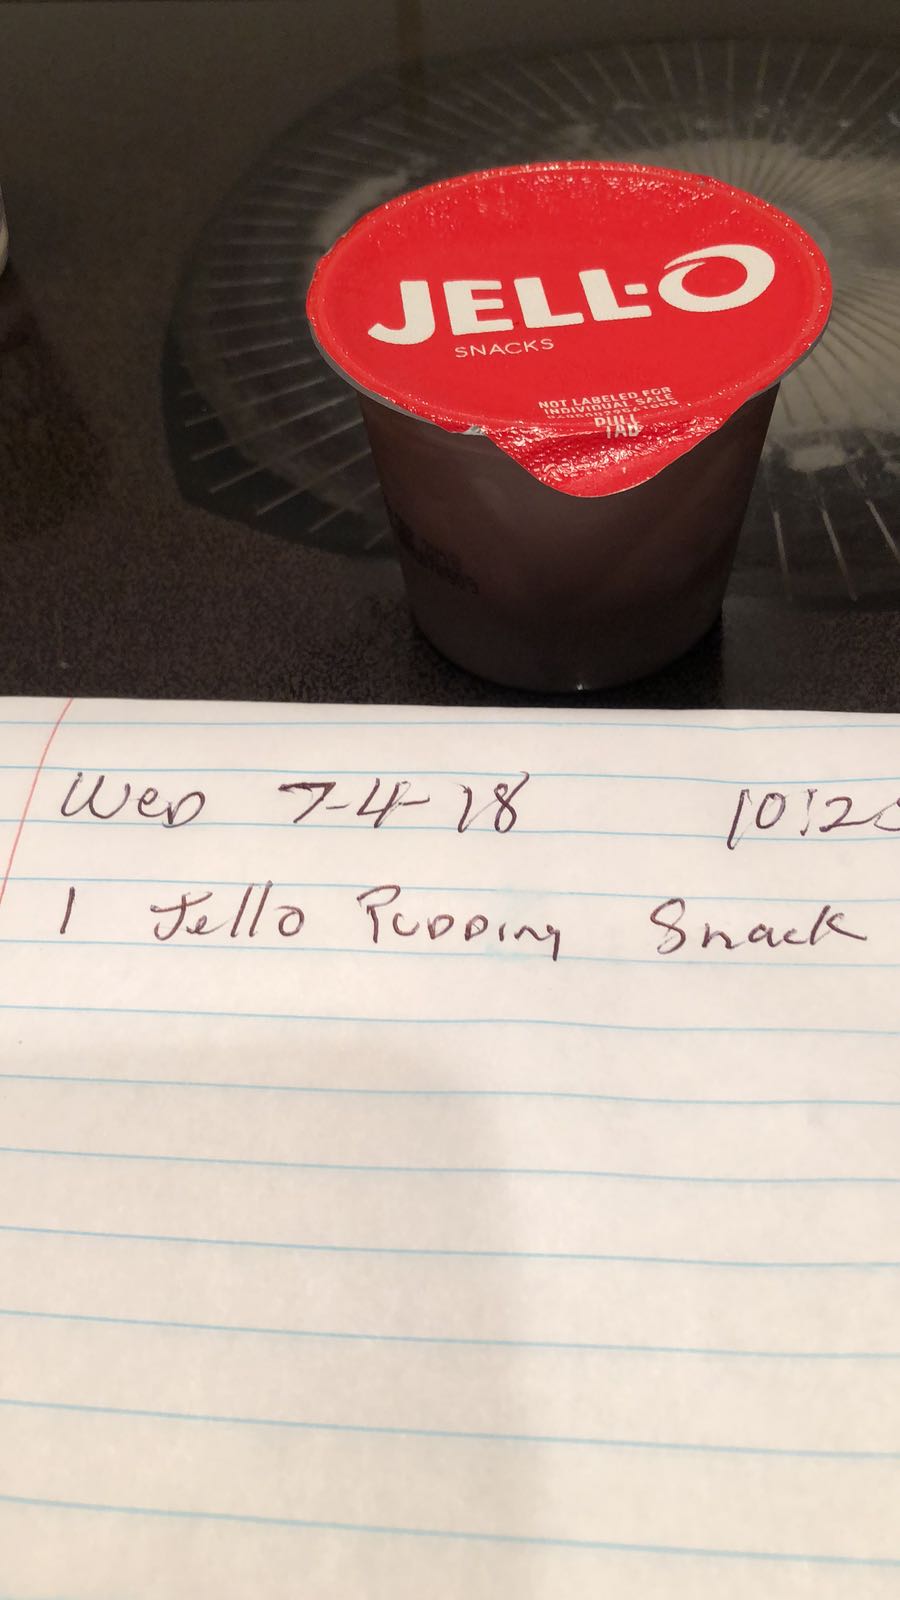 JELL-O
SNACKS
NOT LABELED FOR
INDIVIDUAL SALE
PULL
TAB
Wed 7-4-18 10:20
1 Jello Pudding Snack